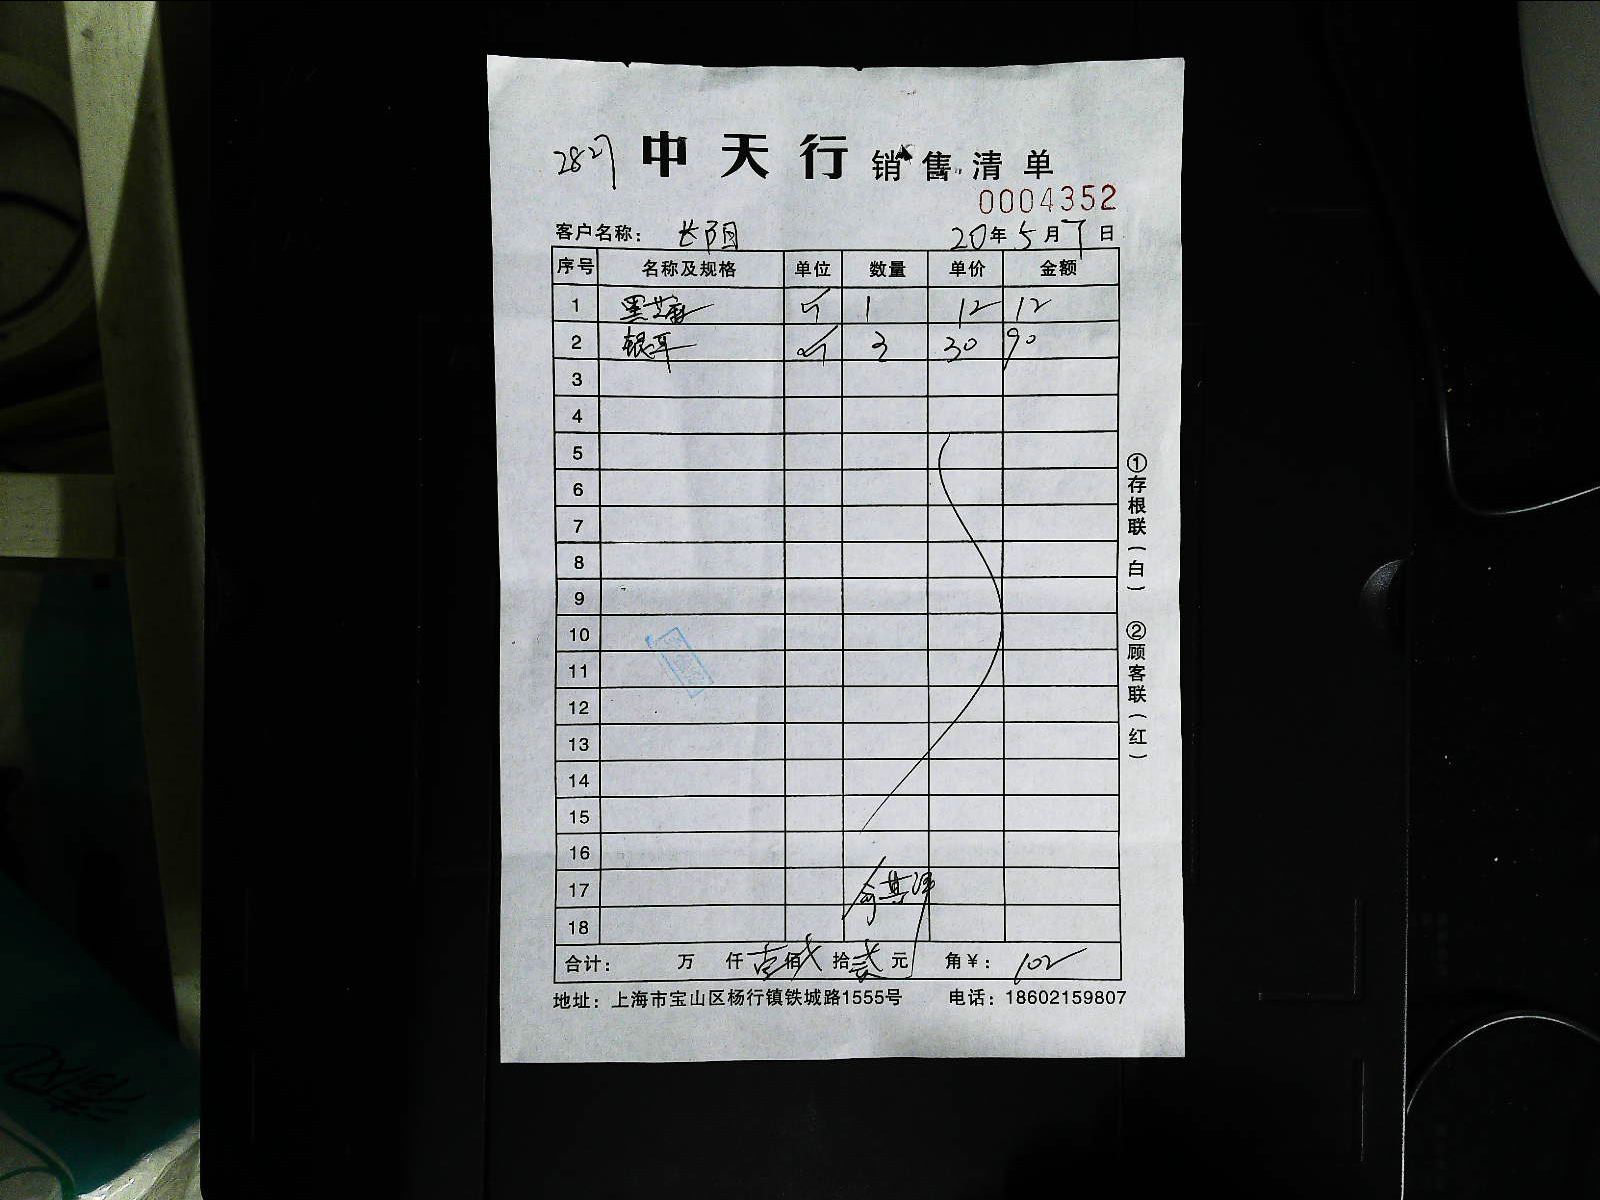 2827 中天行销售清单
0004352
客户名称： 长阳 20年5月7日
序号 名称及规格 单位 数量 单价 金额
1 黑芝麻 斤 1 12 12
2 银耳 斤 3 30 90
3
4
5
6
7
8
9
10
11
12
13
14
15
16
17
18
合计： 万 仟 壹佰 拾贰元 角￥： 102
地址：上海市宝山区杨行镇铁城路1555号 电话：18602159807
①存根联（白） ②顾客联（红）